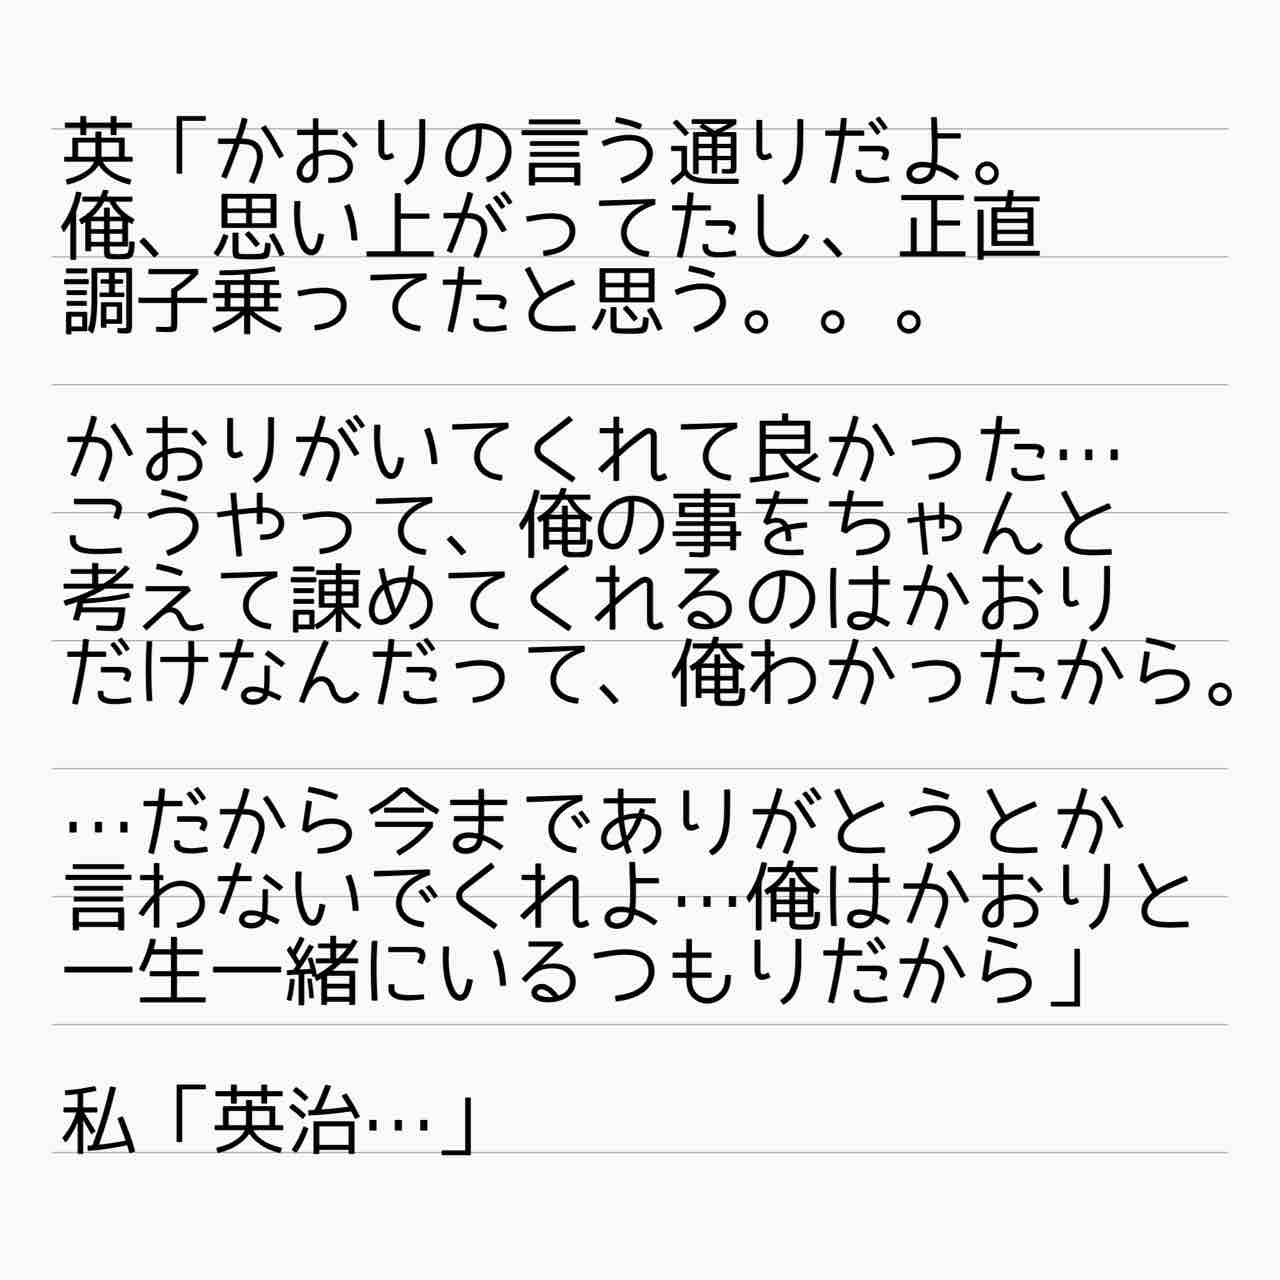 英「かおりの言う通りだよ。
俺、思い上がってたし、正直
調子乗ってたと思う。。。
かおりがいてくれて良かった…
こうやって、俺の事をちゃんと
考えて諌めてくれるのはかおり
だけなんだって、俺わかったから。
…だから今までありがとうとか
言わないでくれよ…俺はかおりと
一生一緒にいるつもりだから」
私「英治…」